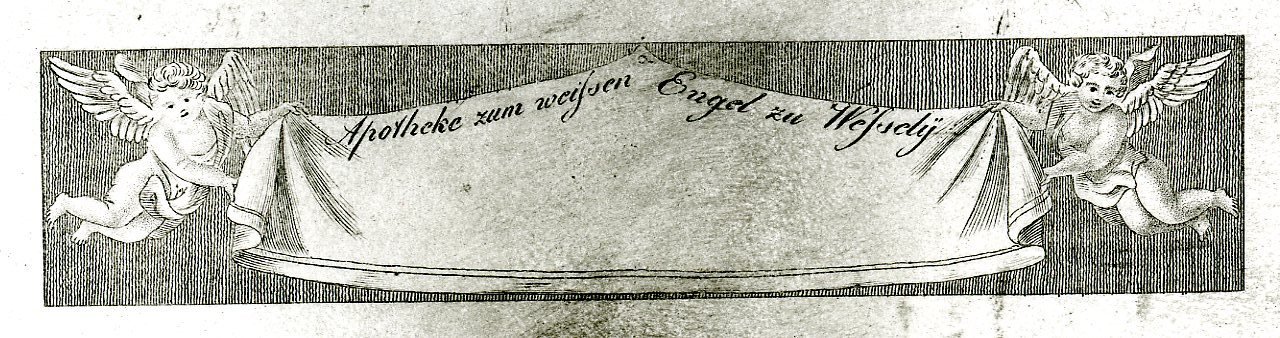 Apotheke zum weiſsen Engel zu Weſselÿ